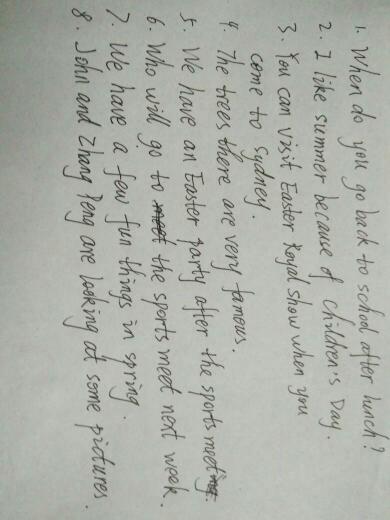 1. When do you go back to school after lunch?
2. I like summer because of children's Day.
3. You can visit Easter Royal Show when you
come to Sydney.
4. The trees there are very famous.
5. We have an Easter party after the sports meet.
6. Who will go to the sports meet next week.
7. We have a few fun things in spring.
8. John and Zhang Peng are looking at some pictures.